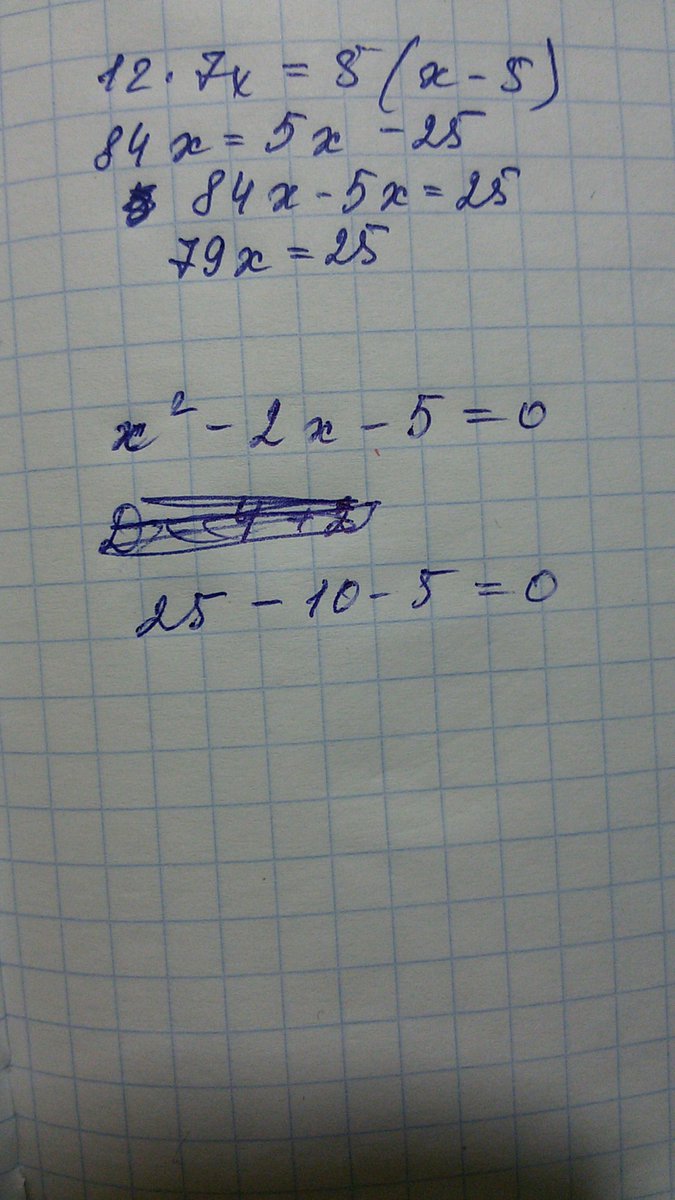 12 · 7x = 5 (x - 5)
84x = 5x - 25
84x - 5x = 25
79x = 25
x² - 2x - 5 = 0
25 - 10 - 5 = 0